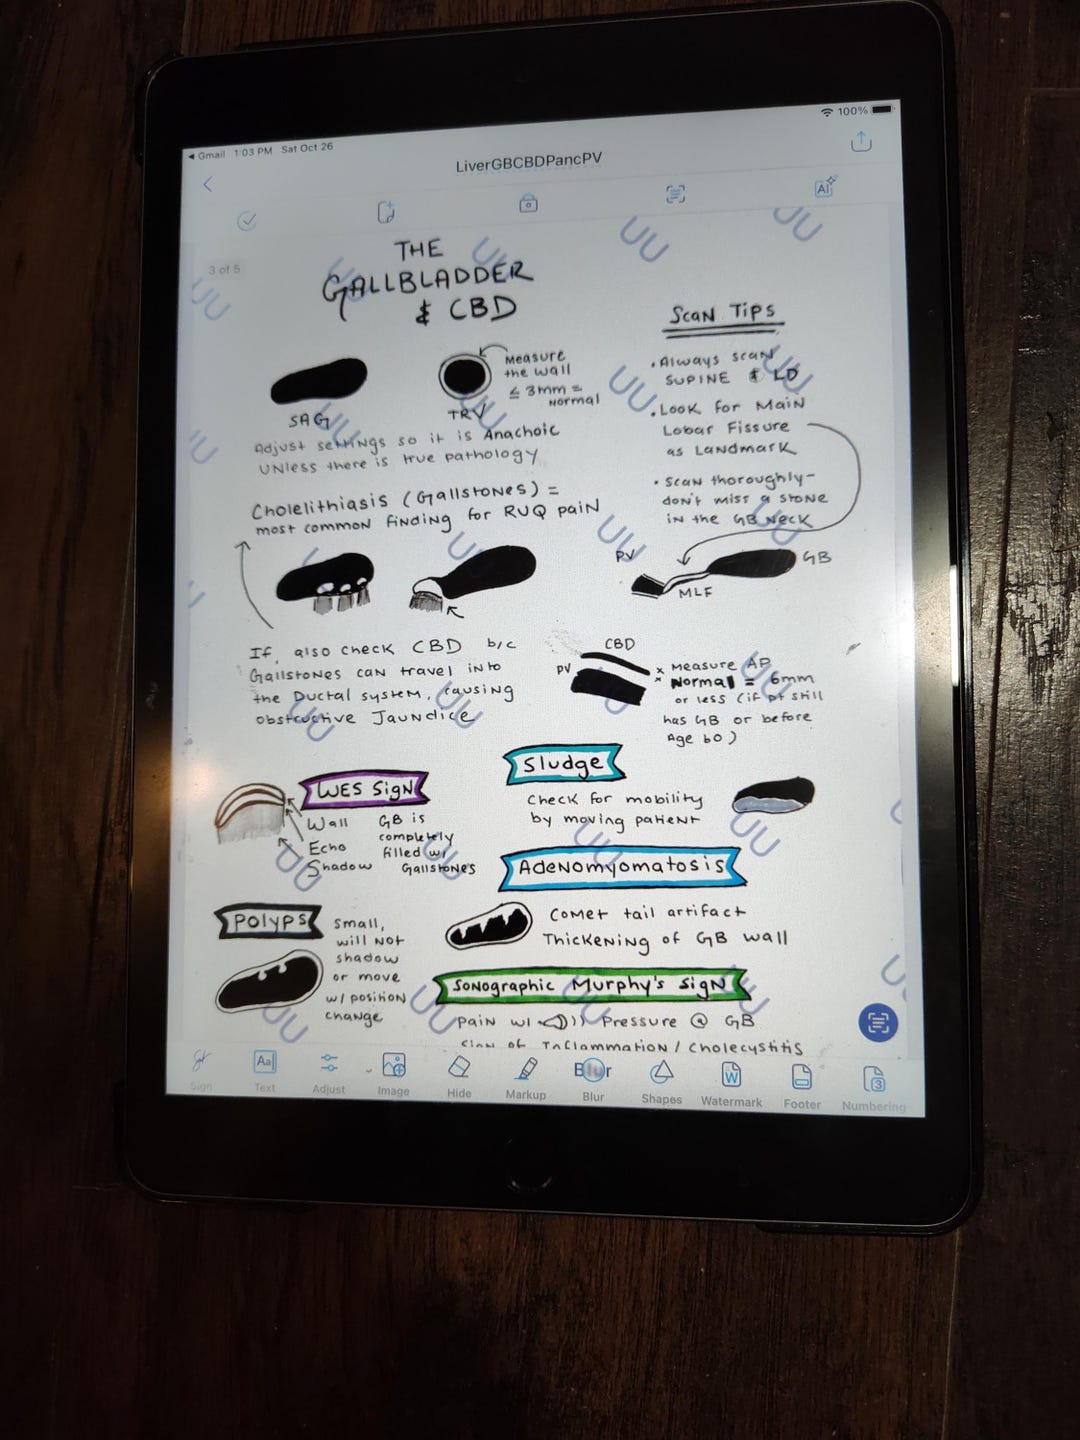 Gmail 1:03 PM Sat Oct 26
100%
LiverGBCBDPancPV
AI
3 of 5
THE
GALLBLADDER
& CBD
SAG
TRV
Measure
the wall
≤ 3mm =
Normal
Adjust settings so it is Anachoic
UNless there is true pathology
Cholelithiasis (Gallstones) =
most common finding for RUQ pain
If, also check CBD b/c
Gallstones can travel into
the Ductal system, causing
obstructive Jaundice
Scan Tips
• Always scan
SUPINE & LD
• Look for Main
Lobar Fissure
as Landmark
• Scan thoroughly-
don't miss a stone
in the GB Neck
PV
GB
MLF
CBD
PV
x Measure AP
x Normal = 6mm
or less (if pt still
has GB or before
Age 60)
WES SigN
Wall
Echo
Shadow
GB is
completely
filled w/
Gallstones
Sludge
Check for mobility
by moving patient
Adenomyomatosis
Comet tail artifact
Thickening of GB wall
Polyps
Small,
will NOT
shadow
or move
w/ position
change
Sonographic Murphy's Sign
Pain w/ ))) Pressure @ GB
Sign of Inflammation / Cholecystitis
Sign
Aa
Text
Adjust
Image
Hide
Markup
Blur
Blur
Shapes
W
Watermark
Footer
3
Numbering
UU